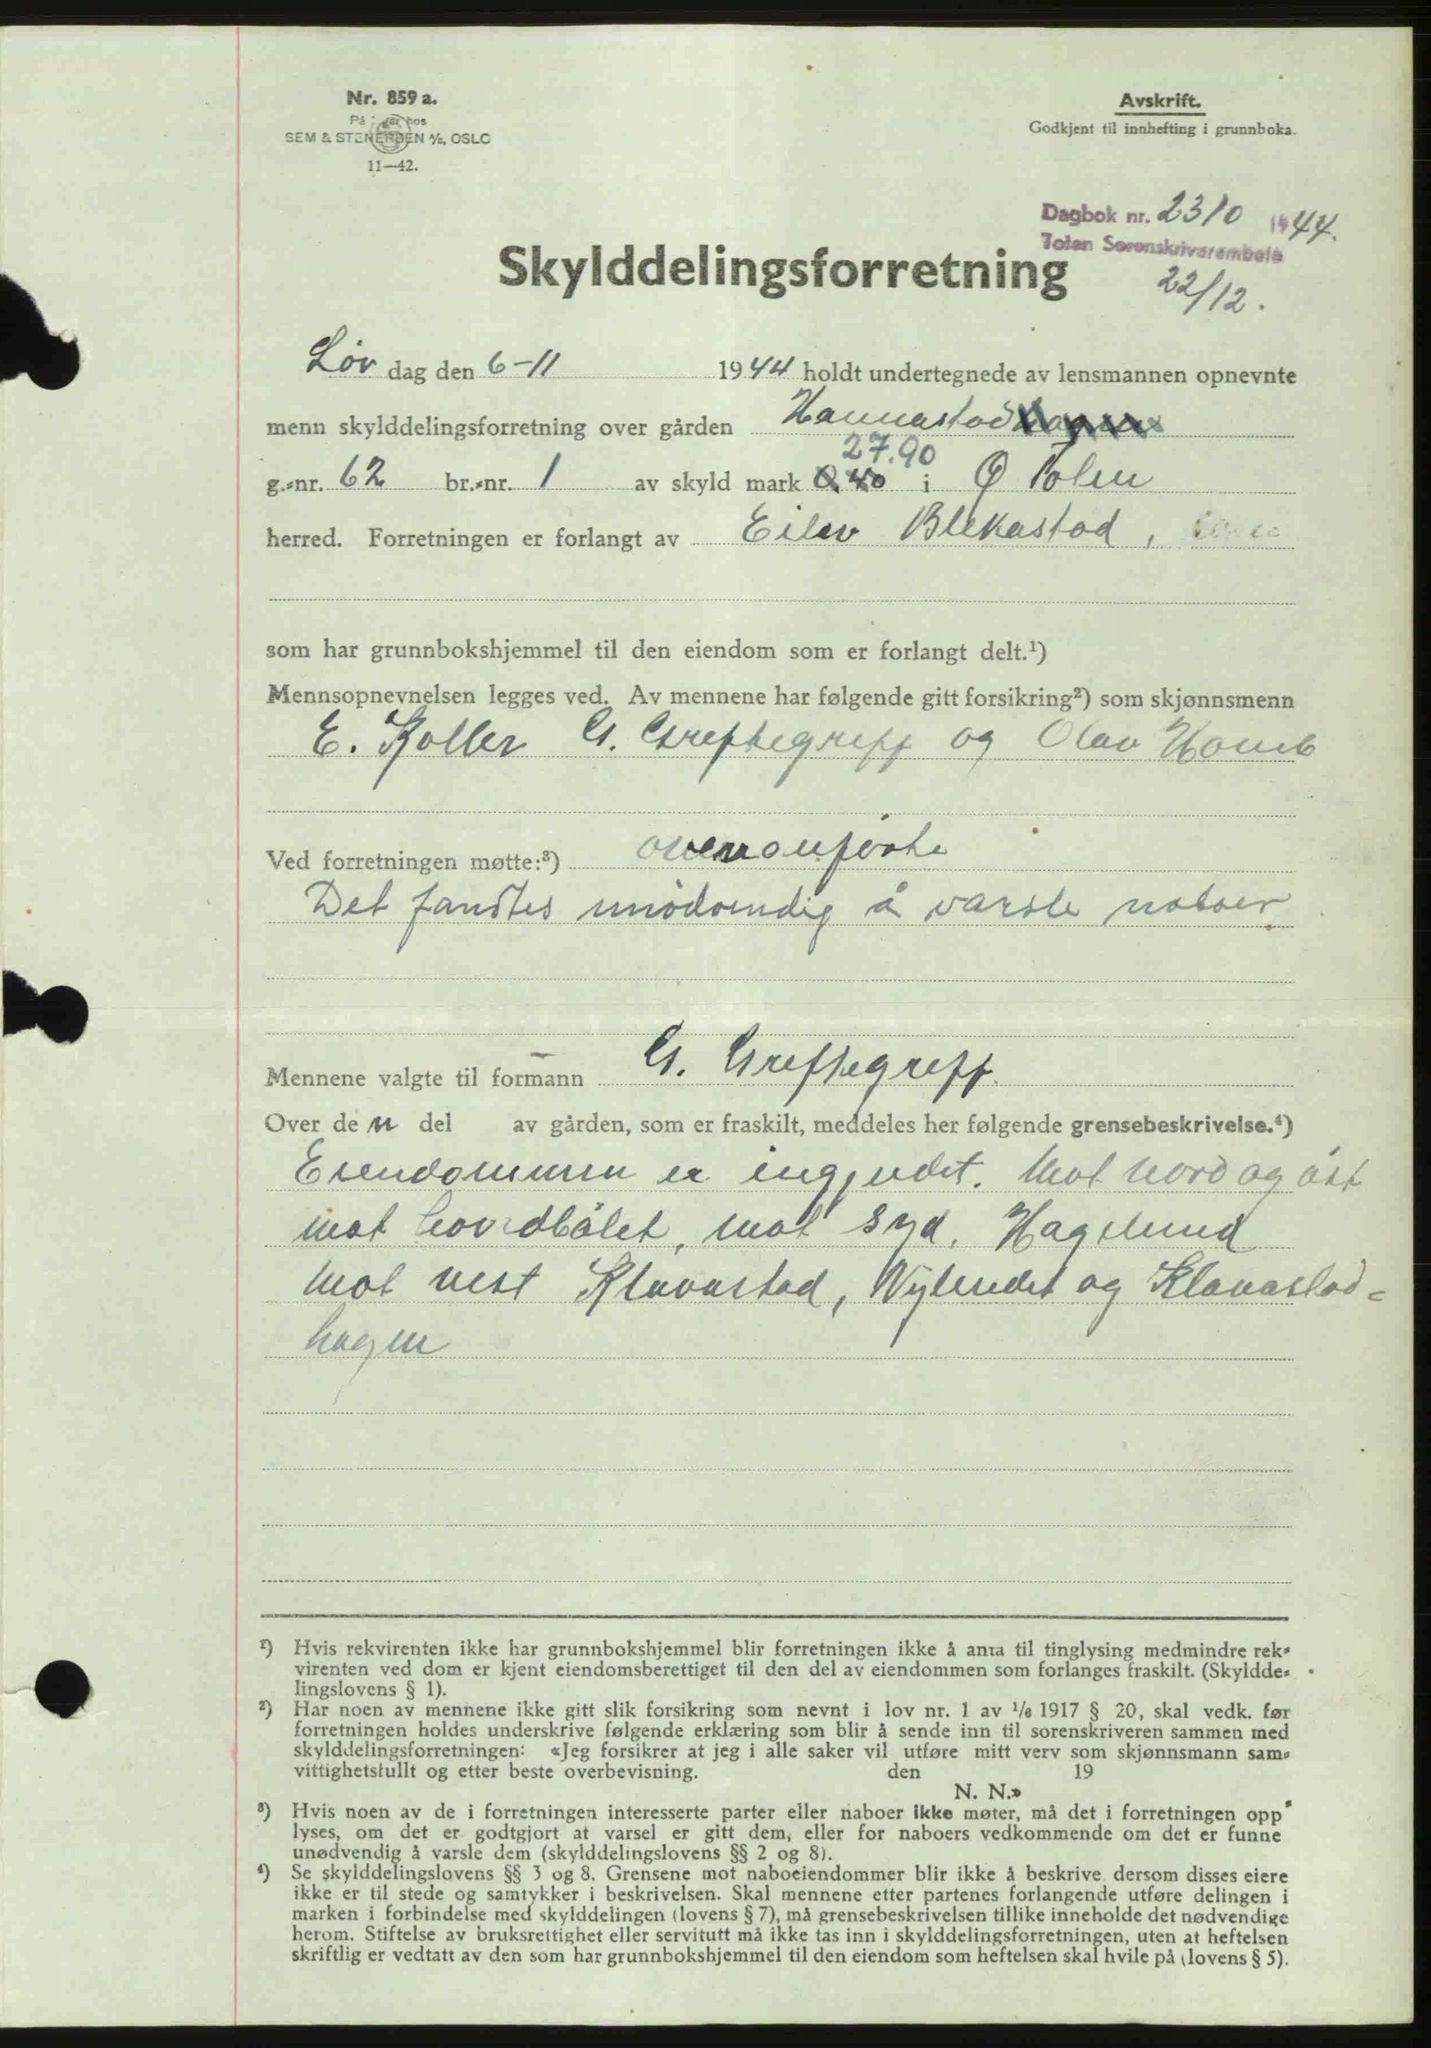 Nr. 859 a.
På lager hos
SEM & STENERSEN A/S, OSLO
11—42.
Avskrift.
Godkjent til innhefting i grunnboka.
Dagbok nr. 2310 1944.
Toten Sorenskriverembete
22/12.
Skylddelingsforretning
Løv dag den 6-11 1944 holdt undertegnede av lensmannen opnevnte
menn skylddelingsforretning over gården Hannastad
27.90
g.-nr. 62 br.-nr. 1 av skyld mark 0.40 i Ø Toten
herred. Forretningen er forlangt av Eilev Blekastad,
som har grunnbokshjemmel til den eiendom som er forlangt delt.¹)
Mennsopnevnelsen legges ved. Av mennene har følgende gitt forsikring²) som skjønnsmenn
E. Koller G. Greftegreff og Olav
Ved forretningen møtte:³) ovenanførte
Det fandtes unødvendig å varsle naboer
Mennene valgte til formann G. Greftegreff.
Over den del av gården, som er fraskilt, meddeles her følgende grensebeskrivelse.⁴)
Eiendommen er ingjerdet. Mot nord og øst
mot hovedbølet, mot syd. Hagelund
mot vest Klavastad, Nylendet og Klavastad=
hagen
¹) Hvis rekvirenten ikke har grunnbokshjemmel blir forretningen ikke å anta til tinglysing medmindre rek-
virenten ved dom er kjent eiendomsberettiget til den del av eiendommen som forlanges fraskilt. (Skyldde-
lingslovens § 1).
²) Har noen av mennene ikke gitt slik forsikring som nevnt i lov nr. 1 av 1/6 1917 § 20, skal vedk. før
forretningen holdes underskrive følgende erklæring som blir å sende inn til sorenskriveren sammen med
skylddelingsforretningen: «Jeg forsikrer at jeg i alle saker vil utføre mitt verv som skjønnsmann sam-
vittighetsfullt og etter beste overbevisning. den 19
N. N.»
³) Hvis noen av de i forretningen interesserte parter eller naboer ikke møter, må det i forretningen opp
lyses, om det er godtgjort at varsel er gitt dem, eller for naboers vedkommende om det er funne
unødvendig å varsle dem (skylddelingslovens §§ 2 og 8).
⁴) Se skylddelingslovens §§ 3 og 8. Grensene mot naboeiendommer blir ikke å beskrive dersom disses eiere
ikke er til stede og samtykker i beskrivelsen. Skal mennene etter partenes forlangende utføre delingen i
marken i forbindelse med skylddelingen (lovens § 7), må grensebeskrivelsen tillike inneholde det nødvendige
herom. Stiftelse av bruksrettighet eller servitutt må ikke tas inn i skylddelingsforretningen, uten at heftelsen
skriftlig er vedtatt av den som har grunnbokshjemmel til den eiendom som heftelsen skal hvile på (lovens § 5).